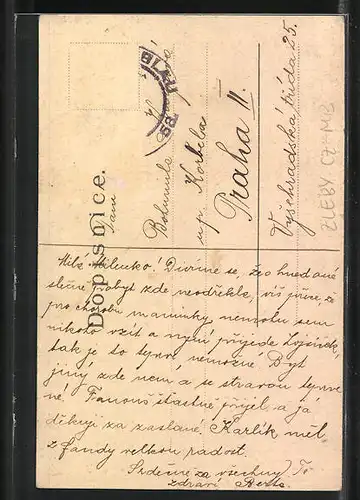 Dopisnice.
Paní
Bohumila
u p. Korbela
Praha II.
Vyšehradská třída 25.
ŽLEBY CZ-MB
Milá Milenko! Divíme se, že's hned
slečně pobyt zde neodřekla, víš přece, že
pro chorobu maminky, nemohu sem
nikoho vzít a nyní přijede
tak je to teprve nemožné. Byt
jiný zde není a se stravou teprve
ne! Franouš šťastně přijel a já
děkuji za zaslané. Karlík měl
z fandy velkou radost.
Srdečně za všechny Tě
zdraví Berta.